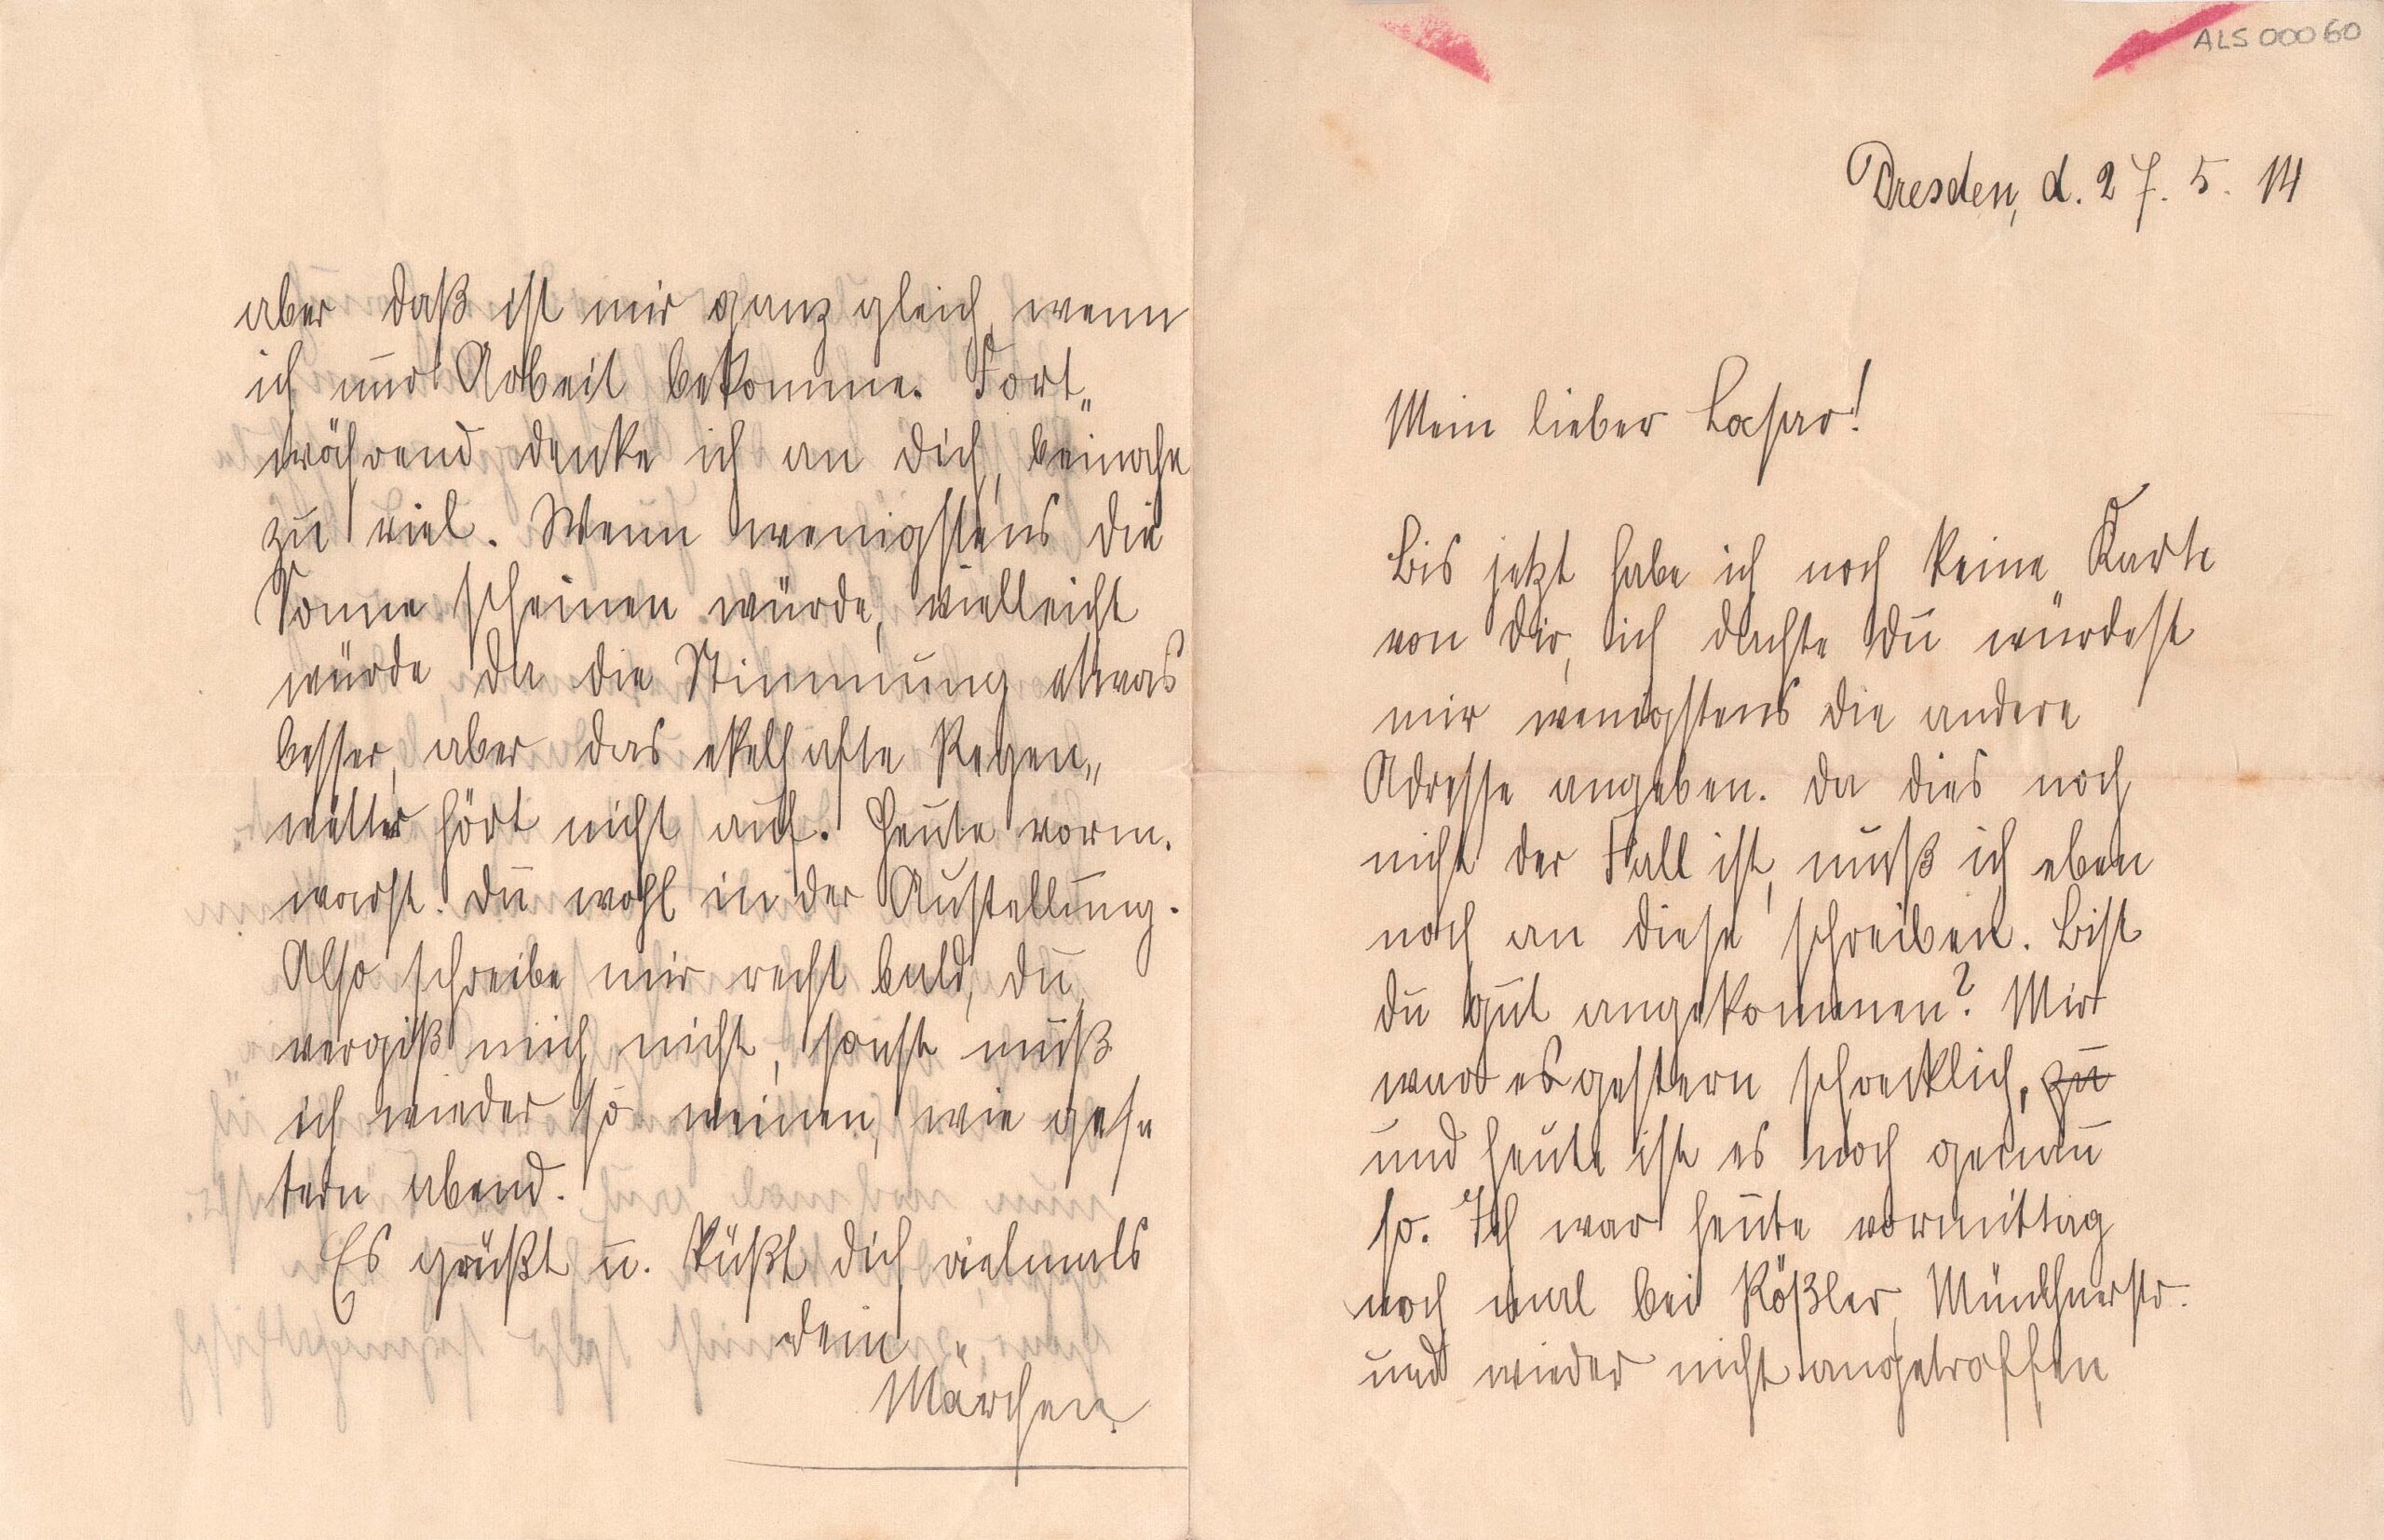 ALS 00060
Dresden, d. 27. 5. 14
Mein lieber Lasar!
Bis jetzt habe ich noch keine Karte
von Dir, ich dachte Du würdest
mir wenigstens die andere
Adresse angeben. Da dies noch
nicht der Fall ist, muß ich eben
noch an diese schreiben. Bist
Du gut angekommen? Mir
war es gestern schrecklich, zu
und heute ist es noch genau
so. Ich war heute vormittag
noch mal bei Rößler, Münchnerstr.
und wieder nicht angetroffen
aber daß ist mir ganz gleich, wenn
ich nur Arbeit bekomme. Fort„
während denke ich an Dich, beinahe
zu viel. Wenn wenigstens die
Sonne scheinen würde, vielleicht
würde da die Stimmung etwas
besser, aber das ekelhafte Regen„
wetter hört nicht auf. Heute vorm.
warst Du wohl in der Austellung.
Also schreibe mir recht bald, Du,
vergiß mich nicht, sonst muß
ich wieder so weinen, wie ges„
tern abend.
Es grüßt u. küßt Dich vielmals
Dein
Märchen.